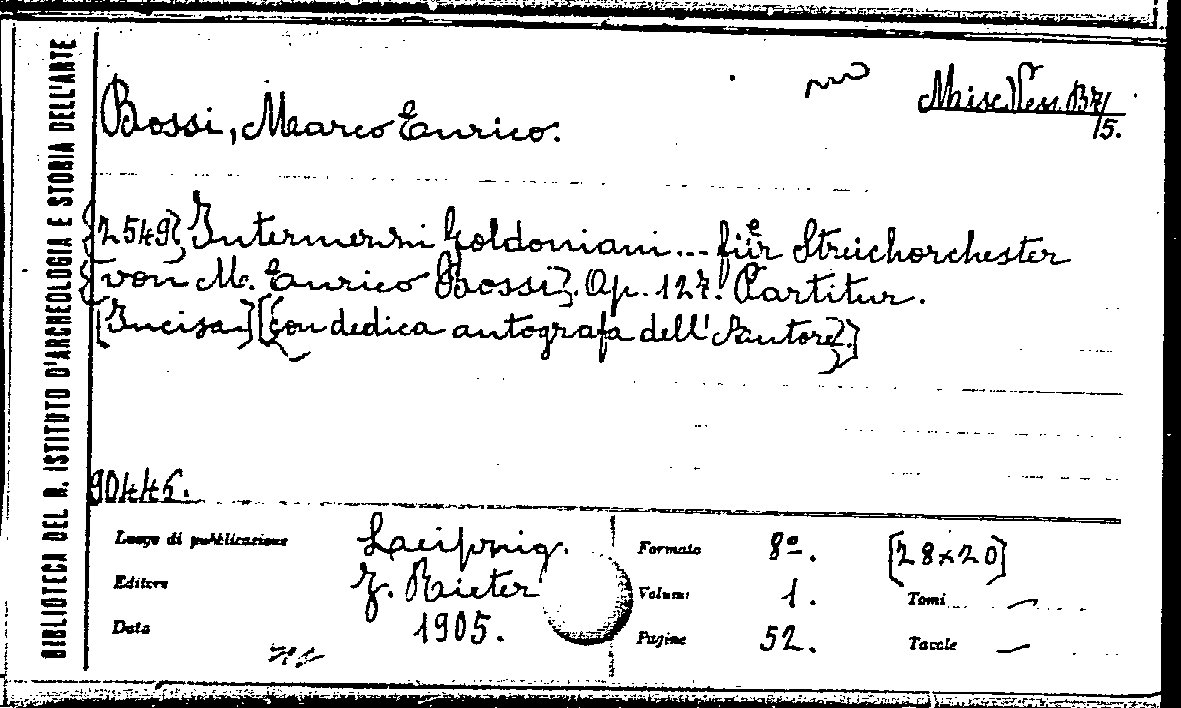 BIBLIOTECA DEL R. ISTITUTO D'ARCHEOLOGIA E STORIA DELL'ARTE
Misc. Vess. B 7/
5.
Bossi, Marco Enrico.
[2549] Intermezzi Goldoniani... für Streichorchester
[von M. Enrico Bossi]. Op. 127. Partitur.
[Incisa] [con dedica autografa dell'Autore.]
90446.
Luogo di pubblicazione Leipzig.
Formato 8º. [28x20]
Editore J. Rieter
Volumi 1. Tomi —
Data 1905.
Pagine 52. Tavole —